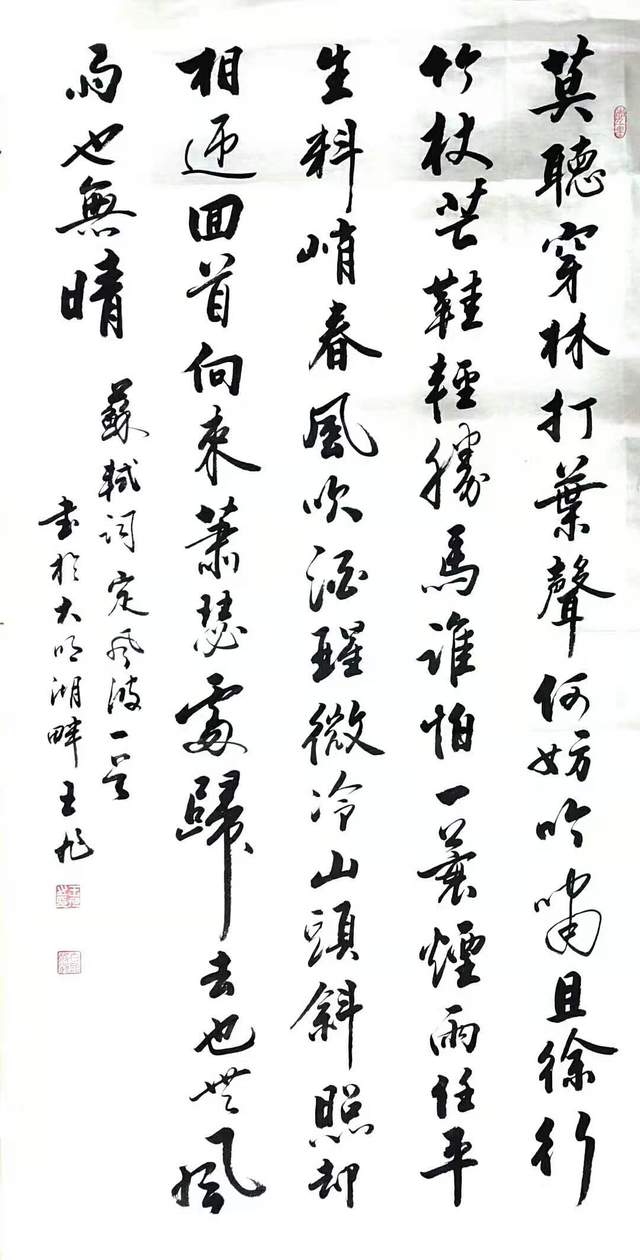 莫聽穿林打葉聲何妨吟嘯且徐行
竹杖芒鞋輕勝馬誰怕一蓑煙雨任平
生料峭春風吹酒醒微冷山頭斜照却
相迎回首向来蕭瑟處歸去也無風
雨也無晴
蘇軾詞定風波一首
書於大明湖畔王旭